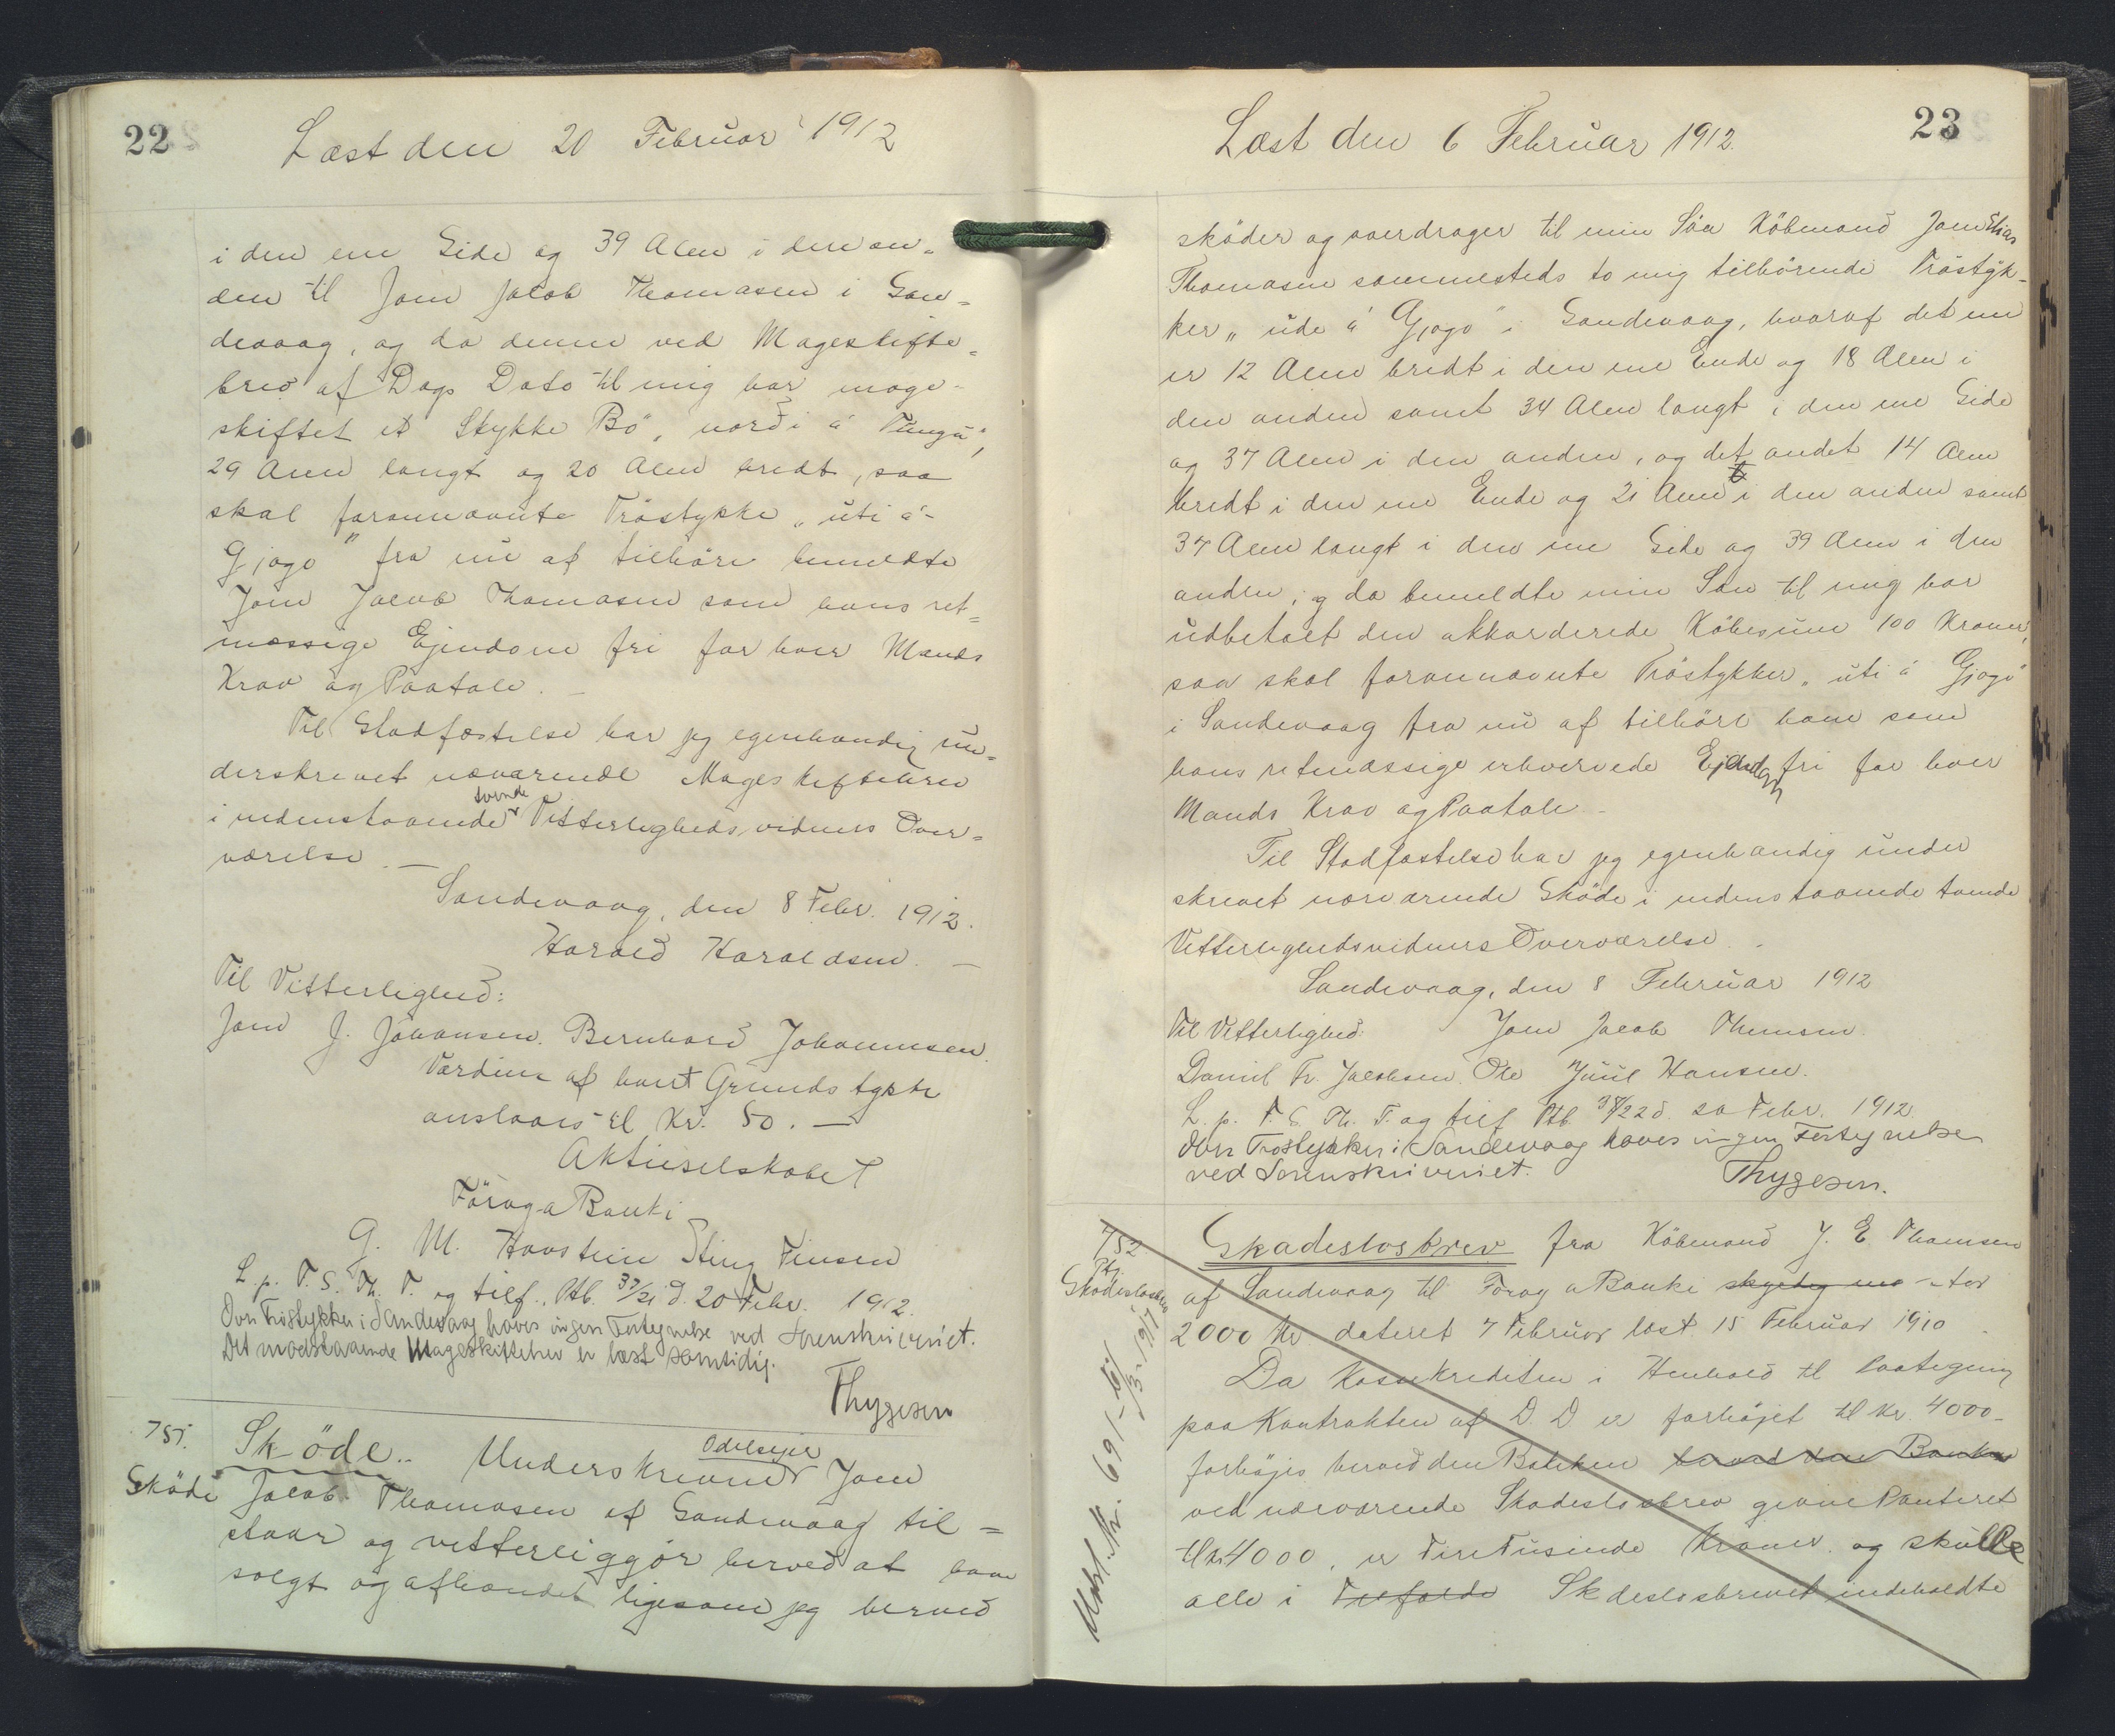 22
Læst den 20 Februar 1912
i den ene Side og 39 Alen i den an-
den til Joen Jacob Thomasen i San-
devaag, og da denne ved Mageskifte-
brev af Dags Dato til mig har mage-
skiftet et Stykke Bö, norði á Tunga",
29 Alen langt og 20 Alen bredt, saa
skal forannævnte Tröstykke "uti á
Gjogv" fra nu af tilhöre bemeldte
Joen Jacob Thomasen som hans ret-
mæssige Ejendom fri for hver Mands
Krav og Paatale. -
Til Stadfæstelse har jeg egenhændig un-
derskrevet nærværende Mageskiftebrev
i nedenstaaende tvende Vitterlighedsvidners Over-
værelse. -
Sandevaag, den 8 Febr. 1912.
Harald Haraldsen. -
Til Vitterlighed:
Joen J. Johansen. Bernhard Johannesen.
Værdien af hvert Grundstykke
anslaaes til Kr. 50. -
Aktieselskabet
Föroya Banki
G. M. Sting Finsen
L. p. T. S. Th. T. og tilf. Ptb. 37/21 d. 20 Febr. 1912.
Over Tröstykker i Sandevaag haves ingen Fortegnelse ved Sorenskriveriet.
Det modstaaende Mageskiftebrev er læst samtidig.
Thygesen
751.
Sköde
Sköde.. Underskrevne Odelsejer Joen
Jacob Thomasen af Sandevaag til-
staar og vitterliggör herved at have
solgt og afhændet ligesom jeg herved
23
Læst den 6 Februar 1912.
sköder og overdrager til min Sön Köbmand Joen Elias
Thomasen sammesteds to mig tilhörende Tröstyk-
ker "ude á Gjogv" i Sandevaag, hvoraf det ene
er 12 Alen bredt i den ene Ende og 18 Alen i
den anden samt 34 Alen langt i den ene Side
og 37 Alen i den anden, og det andet 14 Alen
bredt i den ene Ende og 21 Alen i den anden samt
37 Alen langt i den ene Side og 39 Alen i den
anden, og da bemeldte min Sön til mig har
udbetalt den akkorderede Köbesum 100 Kroner,
saa skal forannævnte Tröstykker "uti á Gjogv"
i Sandevaag fra nu af tilhöre ham som
hans retmæssige erhvervede Ejendom fri for hver
Mands Krav og Paatale -
Til Stadfæstelse har jeg egenhændig under
skrevet nærværende Sköde i nedenstaaende tvende
Vitterlighedsvidners Overværelse. -
Sandevaag, den 8 Februar 1912
Til Vitterlighed: Joen Jacob Thomsen.
Daniel Fr. Jacobsen. Ole Juul Hansen.
L. p. T. S. Th. T. og tilf Ptb. 37/22 d. 20 Febr. 1912.
Over Tröstykker i Sandevaag haves ingen Fortegnelse
ved Sorenskriveriet.
Thygesen.
752
Ptg.
Skadeslosbrev
Skadeslosbrev fra Köbmand J. E. Thomsen
af Sandevaag til Föroya Banki for
2000 Kr. dateret 7 Februar læst 15 Februar 1910.
Da Kassekrediten i Henhold til Paategning
paa Kontrakten af D. D er forhöjet til Kr 4000-
forhöjes herved den Banken herved den Banken
ved nærværende Skadeslosbrev givne Panteret
til Kr 4000, er Fire Tusinde Kroner og skulle
alle i Tilfælde Skdeslosbrevet indeholdte
Udsl. Nr. 691